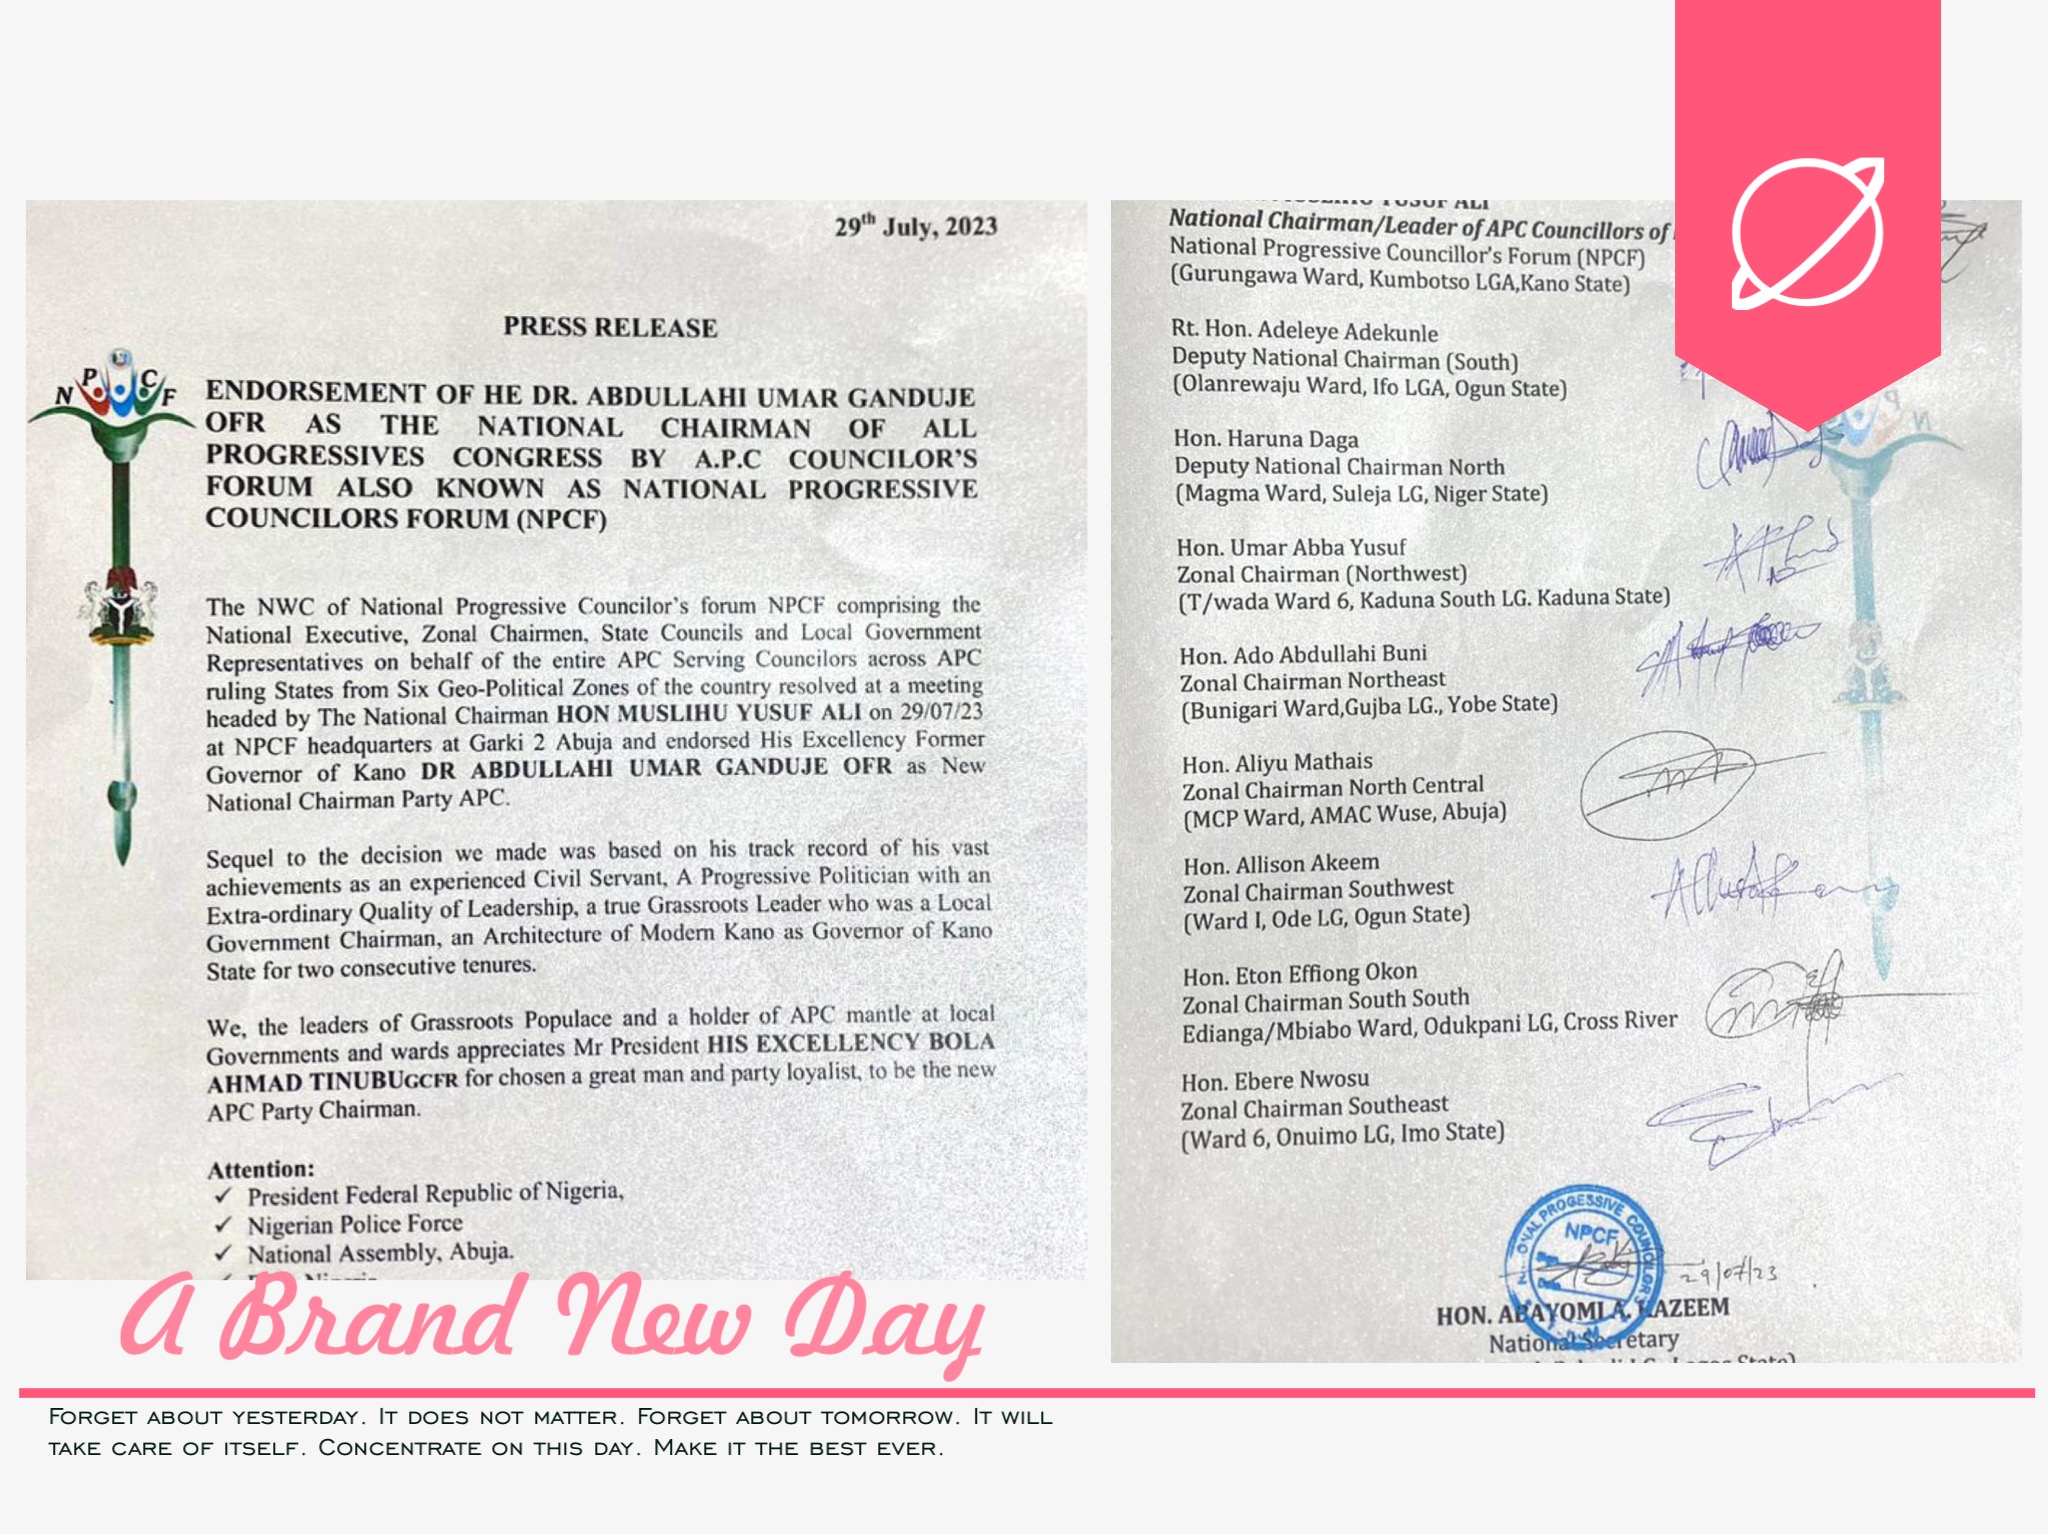 29th July, 2023
PRESS RELEASE
N P C F
ENDORSEMENT OF HE DR. ABDULLAHI UMAR GANDUJE
OFR AS THE NATIONAL CHAIRMAN OF ALL
PROGRESSIVES CONGRESS BY A.P.C COUNCILOR'S
FORUM ALSO KNOWN AS NATIONAL PROGRESSIVE
COUNCILORS FORUM (NPCF)
The NWC of National Progressive Councilor's forum NPCF comprising the
National Executive, Zonal Chairmen, State Councils and Local Government
Representatives on behalf of the entire APC Serving Councilors across APC
ruling States from Six Geo-Political Zones of the country resolved at a meeting
headed by The National Chairman HON MUSLIHU YUSUF ALI on 29/07/23
at NPCF headquarters at Garki 2 Abuja and endorsed His Excellency Former
Governor of Kano DR ABDULLAHI UMAR GANDUJE OFR as New
National Chairman Party APC.
Sequel to the decision we made was based on his track record of his vast
achievements as an experienced Civil Servant, A Progressive Politician with an
Extra-ordinary Quality of Leadership, a true Grassroots Leader who was a Local
Government Chairman, an Architecture of Modern Kano as Governor of Kano
State for two consecutive tenures.
We, the leaders of Grassroots Populace and a holder of APC mantle at local
Governments and wards appreciates Mr President HIS EXCELLENCY BOLA
AHMAD TINUBUGCFR for chosen a great man and party loyalist, to be the new
APC Party Chairman.
Attention:
✓ President Federal Republic of Nigeria,
✓ Nigerian Police Force
✓ National Assembly, Abuja.
YUSUF ALI
National Chairman/Leader of APC Councillors of
National Progressive Councillor's Forum (NPCF)
(Gurungawa Ward, Kumbotso LGA,Kano State)
Rt. Hon. Adeleye Adekunle
Deputy National Chairman (South)
(Olanrewaju Ward, Ifo LGA, Ogun State)
Hon. Haruna Daga
Deputy National Chairman North
(Magma Ward, Suleja LG, Niger State)
Hon. Umar Abba Yusuf
Zonal Chairman (Northwest)
(T/wada Ward 6, Kaduna South LG. Kaduna State)
Hon. Ado Abdullahi Buni
Zonal Chairman Northeast
(Bunigari Ward,Gujba LG., Yobe State)
Hon. Aliyu Mathais
Zonal Chairman North Central
(MCP Ward, AMAC Wuse, Abuja)
Hon. Allison Akeem
Zonal Chairman Southwest
(Ward I, Ode LG, Ogun State)
Hon. Eton Effiong Okon
Zonal Chairman South South
Edianga/Mbiabo Ward, Odukpani LG, Cross River
Hon. Ebere Nwosu
Zonal Chairman Southeast
(Ward 6, Onuimo LG, Imo State)
PROGESSIVE
NPCF
29/07/23
HON. ABAYOMI A. KAZEEM
National Secretary
A Brand New Day
Forget about yesterday. It does not matter. Forget about tomorrow. It will
take care of itself. Concentrate on this day. Make it the best ever.